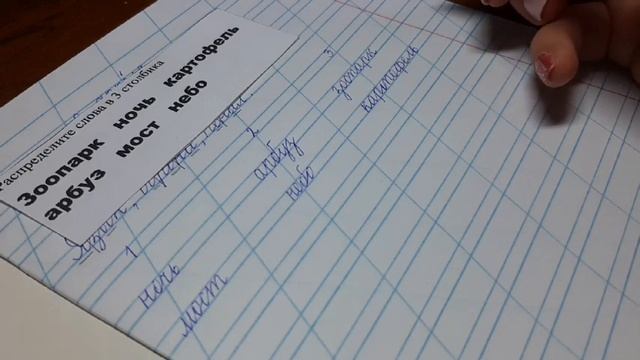 Распределите слова в 3 столбика
Зоопарк ночь картофель
арбуз мост небо
1 2 3
ночь арбуз зоопарк
мост небо картофель